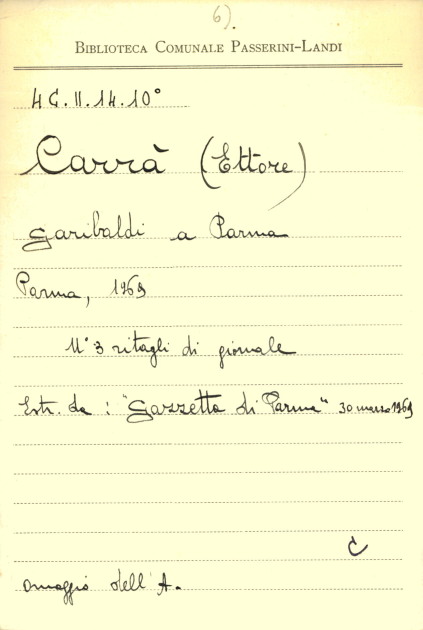 6).
BIBLIOTECA COMUNALE PASSERINI-LANDI
4C.II.14.10°
Carrà (Ettore)
Garibaldi a Parma
Parma, 1969
N° 3 ritagli di giornale
Estr. da: "Gazzetta di Parma" 30 marzo 1969
C
omaggio dell'A.